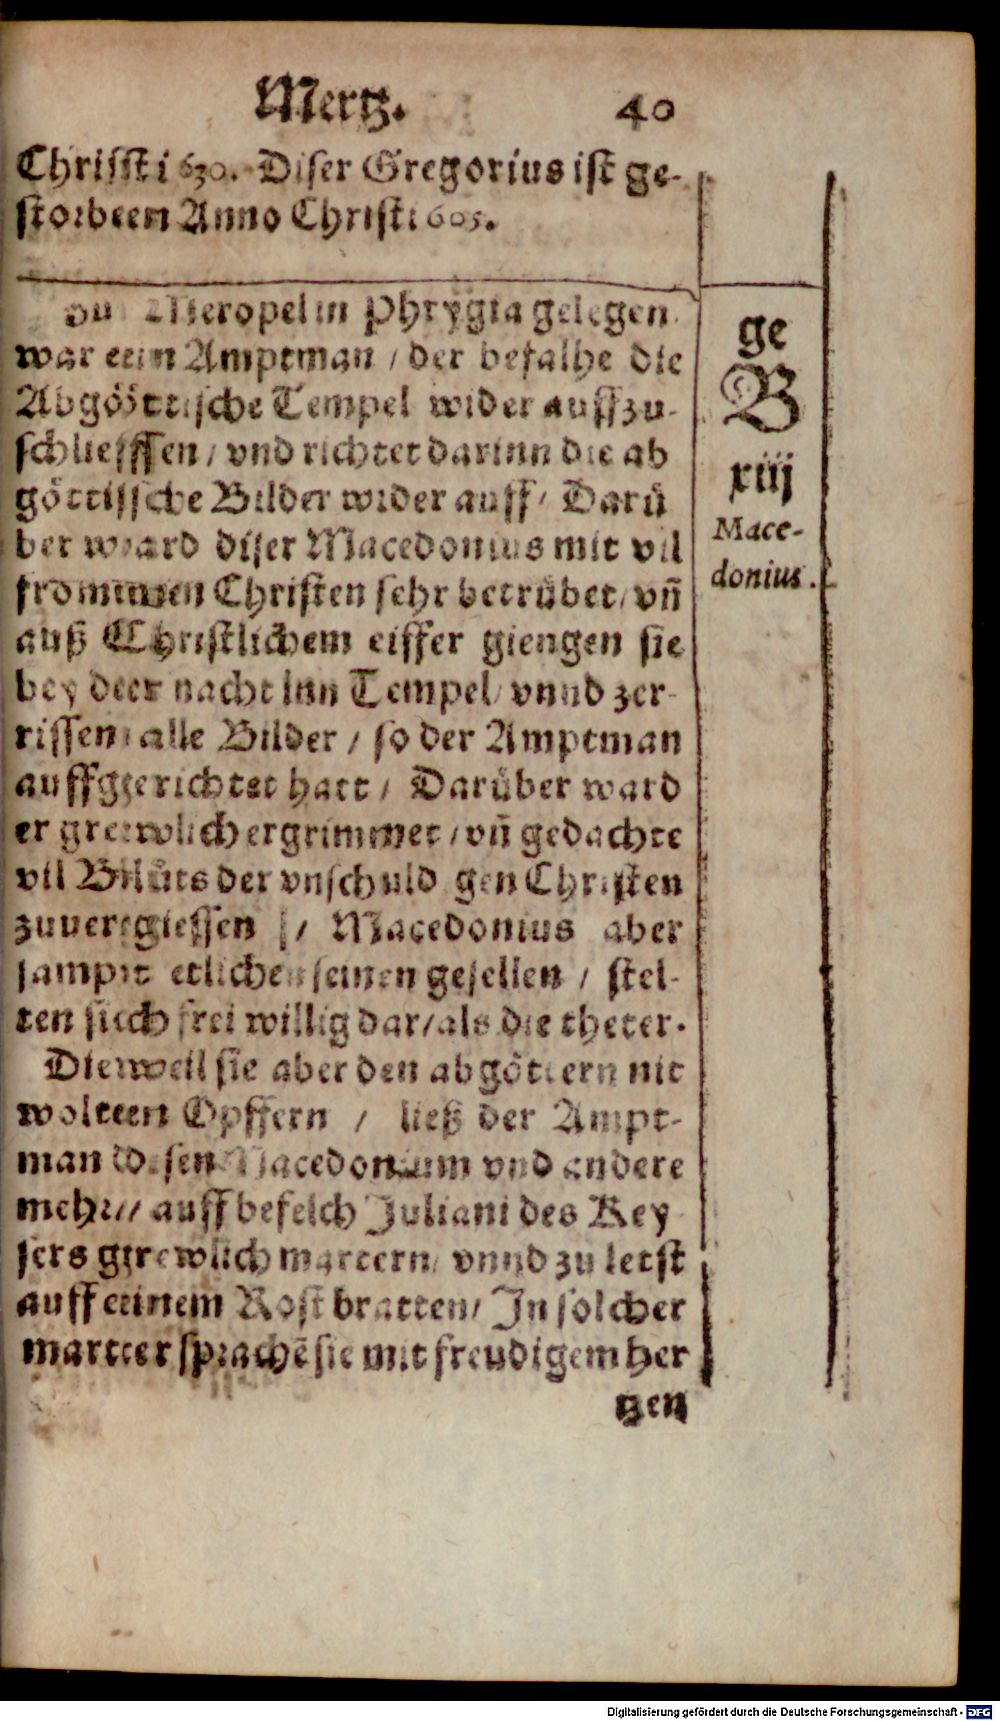 Mertz. 40
Christi 630. Diser Gregorius ist ge-
storben Anno Christi 605.
Zu Meropel in Phrygia gelegen
war ein Amptman / der befalhe die
Abgöttische Tempel wider auffzu-
schliessen / vnd richtet darinn die ab
göttische Bilder wider auff / Darü
ber ward diser Macedonius mit vil
frommen Christen sehr betrübet / vñ
auß Christlichem eiffer giengen sie
bey der nacht inn Tempel / vnnd zer-
rissen alle Bilder / so der Amptman
auffgerichtet hatt / Darüber ward
er grewlich ergrimmet / vñ gedachte
vil Blůts der vnschuldigen Christen
zuuergiessen / Macedonius aber
sampt etlichen seinen gesellen / stel-
ten sich frei willig dar / als die theter.
Dieweil sie aber den abgöttern nit
wolten Opffern / ließ der Ampt-
man disen Macedonium vnd andere
mehr / auff befelch Juliani des Key
sers grewlich martern / vnnd zu letst
auff einem Rost bratten / In solcher
marter sprachẽ sie mit freudigem her
tzen
ge
B
xiij
Mace-
donius.
Digitalisierung gefördert durch die Deutsche Forschungsgemeinschaft - DFG